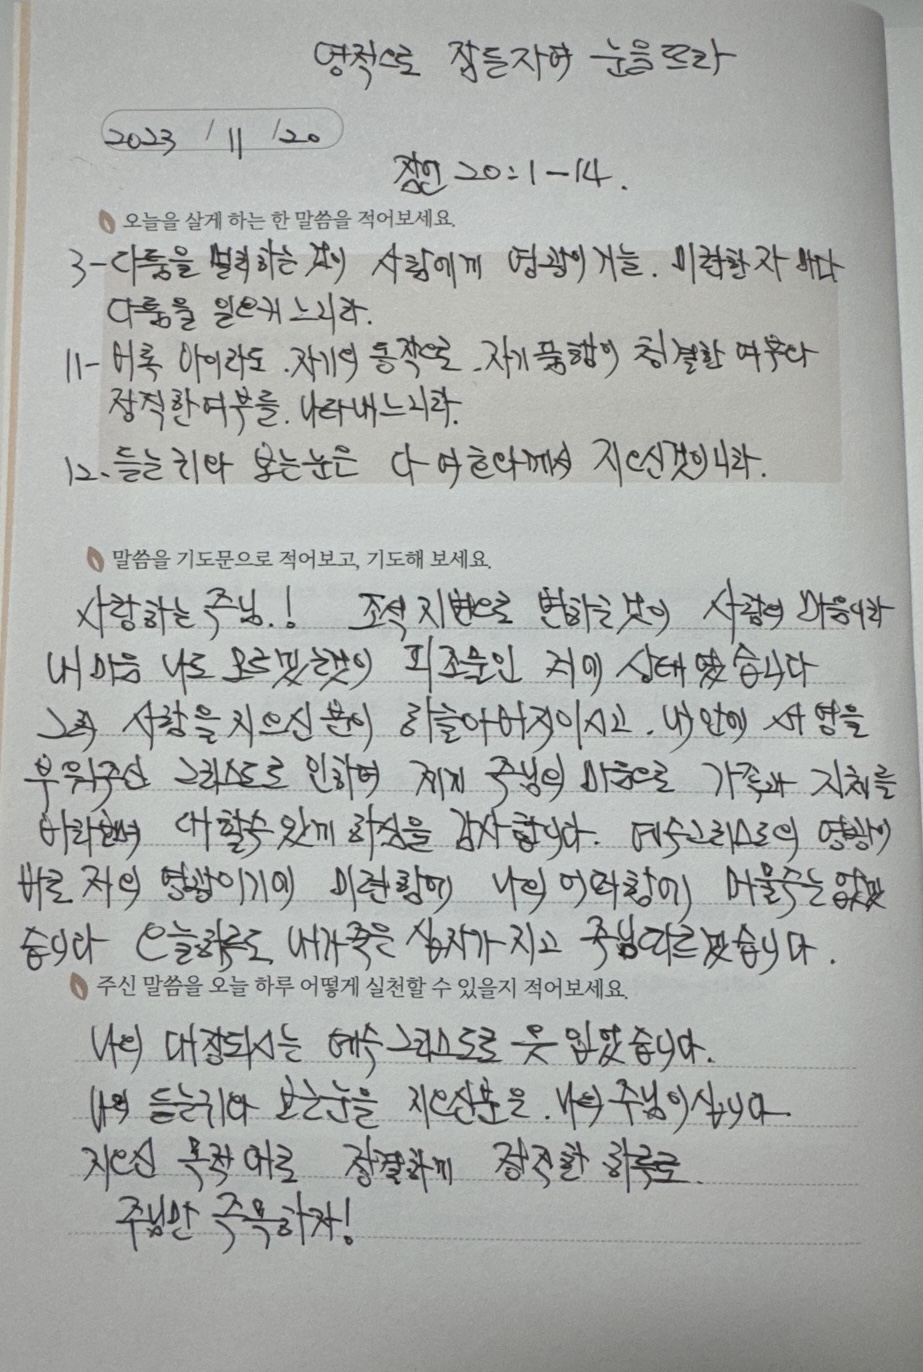 영적으로 잠든자여 눈을뜨라
2023 / 11 / 20
잠언 20:1-14.
오늘을 살게 하는 한 말씀을 적어보세요.
3- 다툼을 멀리하는 것이 사람에게 영광이거늘. 미련한 자 마다
다툼을 일으키느니라.
11- 비록 아이라도. 자기의 동작으로. 자기 품행이 청결한 여부와
정직한여부를. 나타내느니라.
12. 듣는 귀와 보는눈은 다 여호와께서 지으신것이니라.
말씀을 기도문으로 적어보고, 기도해 보세요.
사랑하는 주님.! 조석지변으로 변하는것이 사람의 마음이라
내 마음 나도 모르겠는것이 피조물인 저의 상태였습니다
그러 사람을 지으신 분이 하늘아버지이시고. 내안에 사명을
부워주신 그리스도로 인하여 제게 주님의 마음으로 가족과 지체를
바라보며 대할수 있게 하심을 감사합니다. 예수그리스도의 영광이
바로 저의 영광이기에 미련함에 나의 어리석함에 머물수는 없었
습니다 오늘하루도 내가죽은 십자가 지고 주님따르겠습니다.
주신 말씀을 오늘 하루 어떻게 실천할 수 있을지 적어보세요.
나의 대장되시는 예수그리스도로 옷 입었습니다.
나의 듣는귀와 보는눈을 지으신분은. 나의 주님이십니다
지으신 목적대로 정결하게 정직한 하루로.
주님만 주목하자!